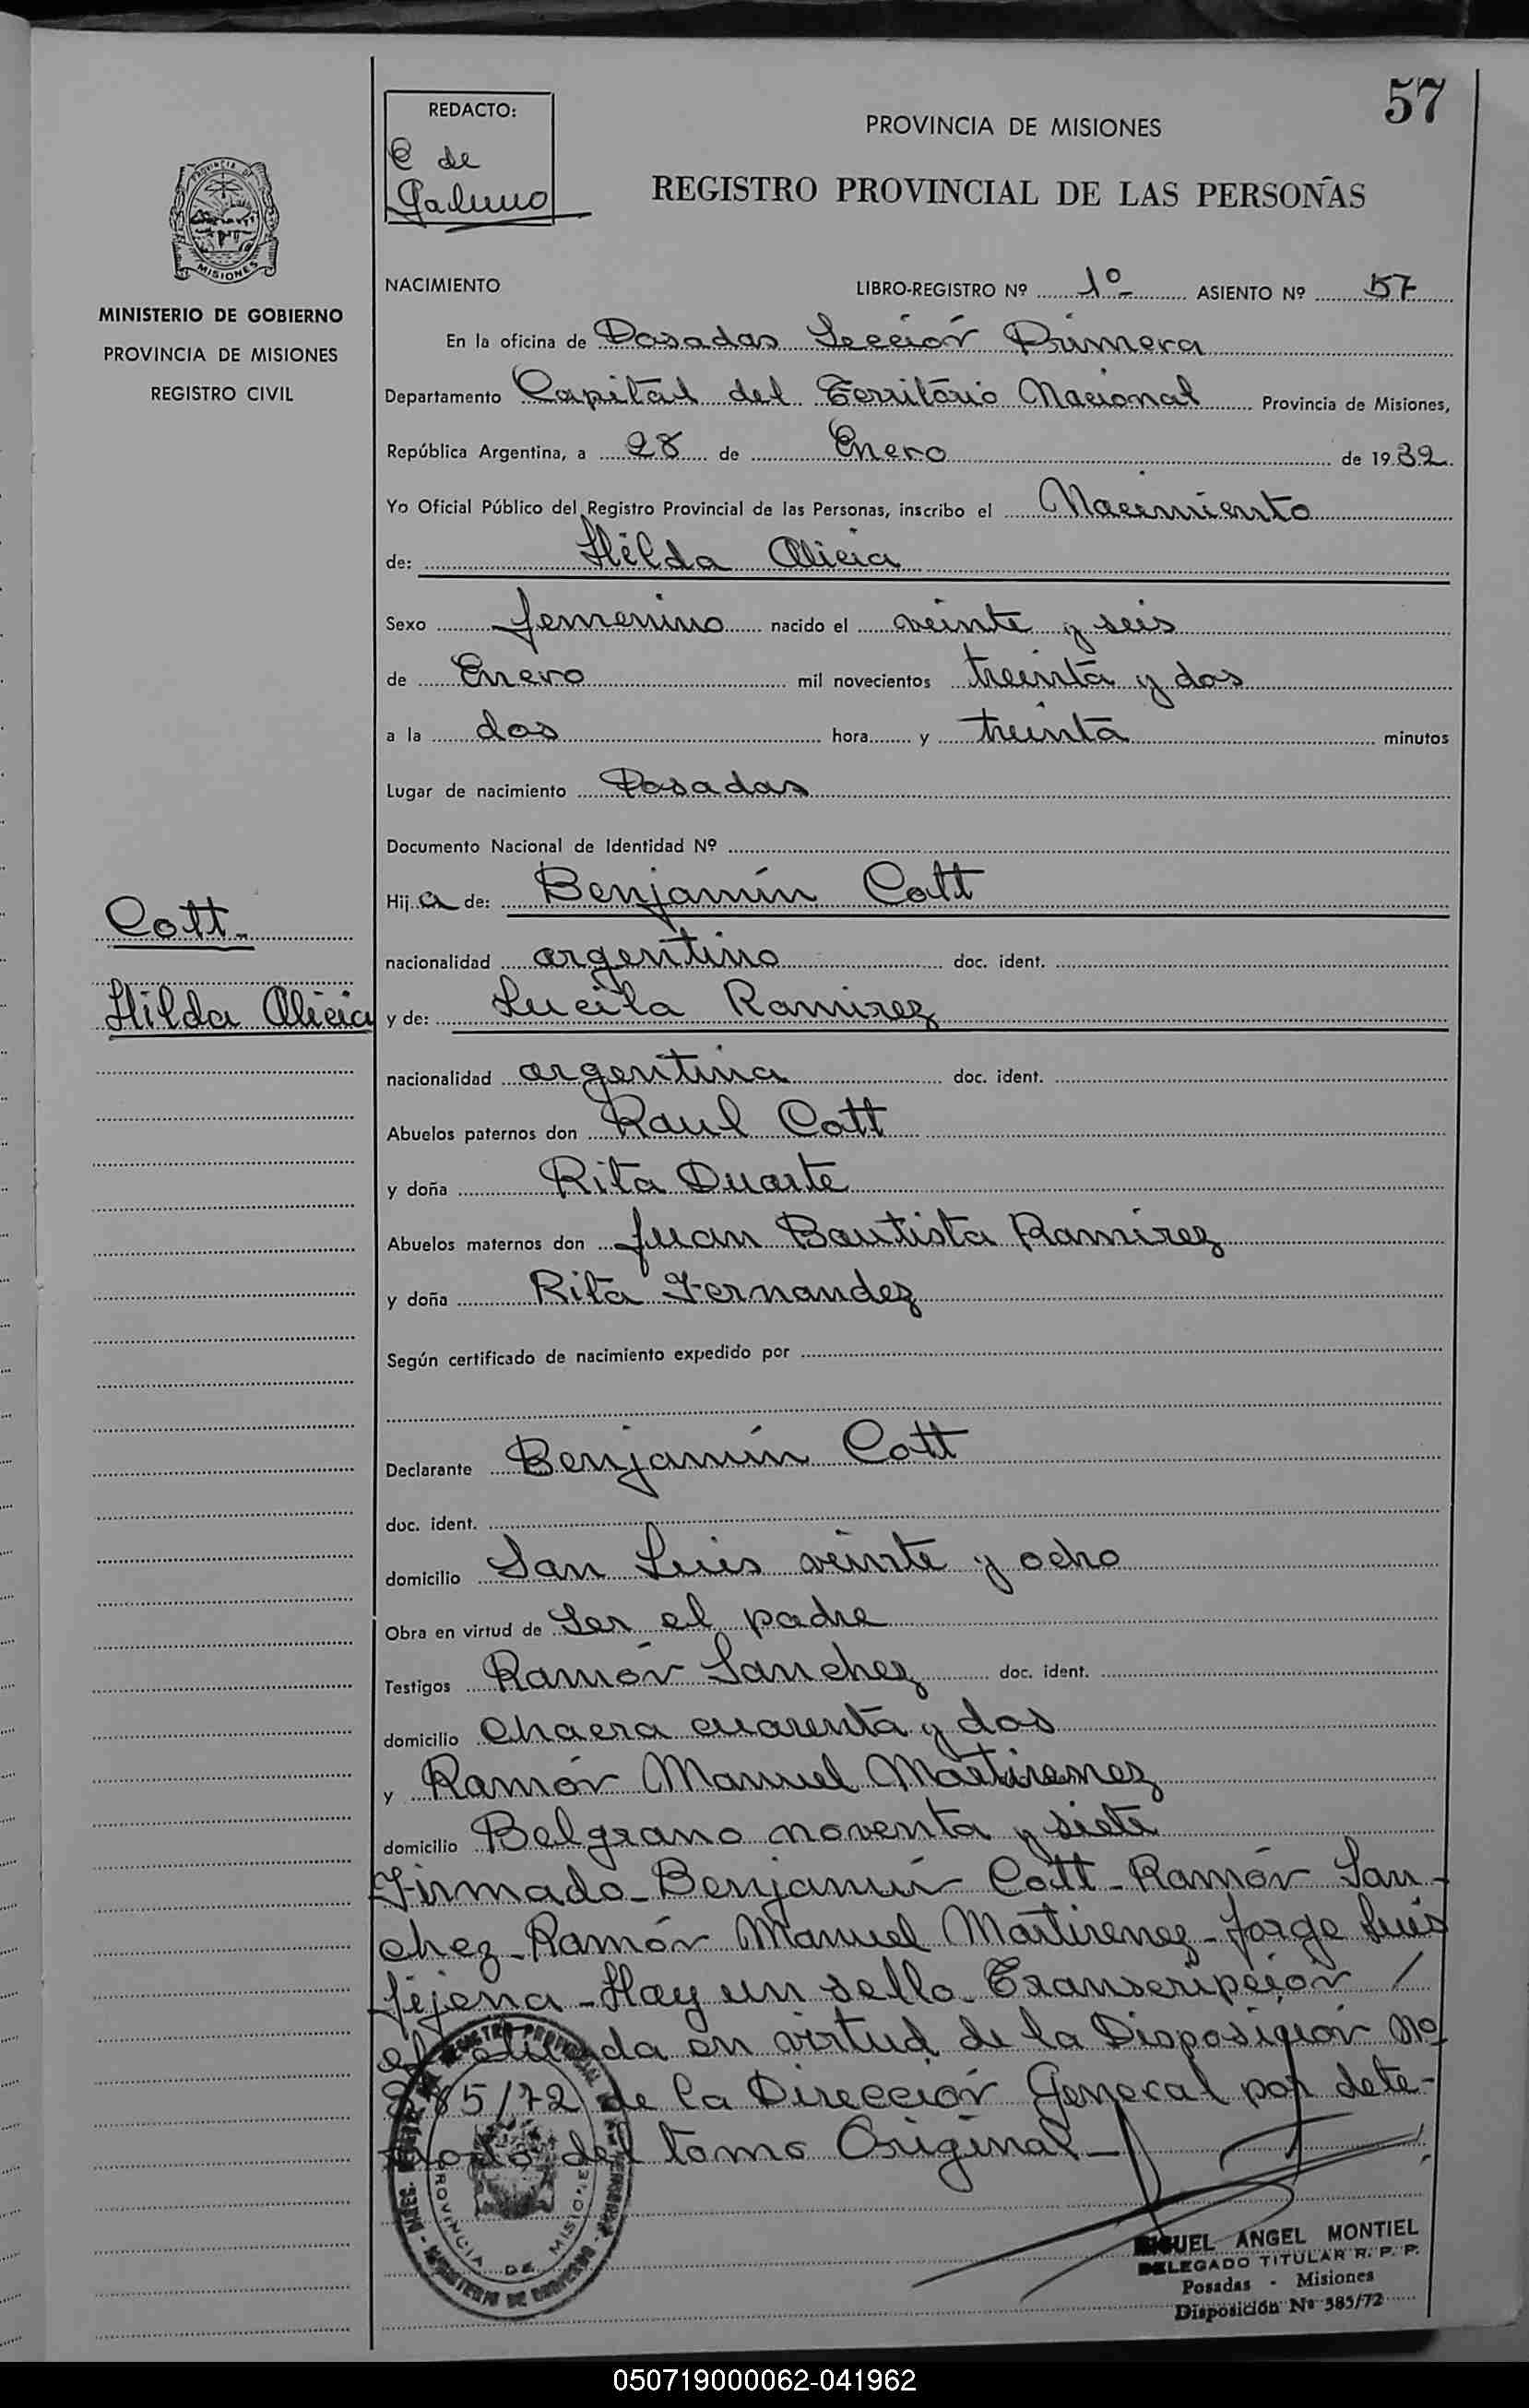 57
REDACTO:
C de
Galeano
PROVINCIA DE MISIONES
REGISTRO PROVINCIAL DE LAS PERSONAS
PROVINCIA DE
MISIONES
MINISTERIO DE GOBIERNO
PROVINCIA DE MISIONES
REGISTRO CIVIL
NACIMIENTO LIBRO-REGISTRO Nº 1º ASIENTO Nº 57
En la oficina de Posadas Sección Primera
Departamento Capital del Territorio Nacional Provincia de Misiones,
República Argentina, a 28 de Enero de 1932.
Yo Oficial Público del Registro Provincial de las Personas, inscribo el Nacimiento
de: Hilda Alicia
Sexo femenino nacido el veinte y seis
de Enero mil novecientos treinta y dos
a la dos hora y treinta minutos
Lugar de nacimiento Posadas
Documento Nacional de Identidad Nº
Hija de: Benjamín Cott
nacionalidad argentino doc. ident.
y de: Lucila Ramirez
nacionalidad argentina doc. ident.
Cott.
Hilda Alicia
Abuelos paternos don Raul Cott
y doña Rita Duarte
Abuelos maternos don Juan Bautista Ramirez
y doña Rita Fernandez
Según certificado de nacimiento expedido por
Declarante Benjamín Cott
doc. ident.
domicilio San Luis veinte y ocho
Obra en virtud de Ser el padre
Testigos Ramón Sanchez doc. ident.
domicilio Chacra cuarenta y dos
y Ramón Manuel Martirenez
domicilio Belgrano noventa y siete
Firmado - Benjamín Cott - Ramón San-
chez - Ramón Manuel Martirenez - Jorge Luis
Jejena - Hay un sello - Transcripción /
efectuada en virtud de la Disposición Nº
385/72 de la Dirección General por dete-
del tomo Original -
PROVINCIA DE MISIONES
MIGUEL ANGEL MONTIEL
DELEGADO TITULAR R. P. P.
Posadas - Misiones
Disposición Nº 385/72
050719000062-041962